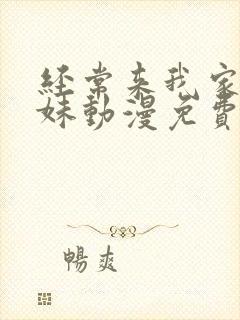 经常来我家
妹動漫免費
暢爽